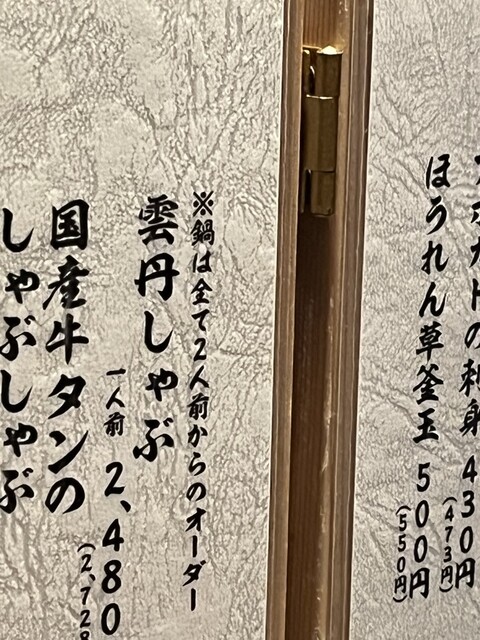 アボカドの刺身 430円
(473円)
ほうれん草釜玉 500円
(550円)
※鍋は全て2人前からのオーダー
雲丹しゃぶ
一人前 2,480
(2,728
国産牛タンの
しゃぶしゃぶ